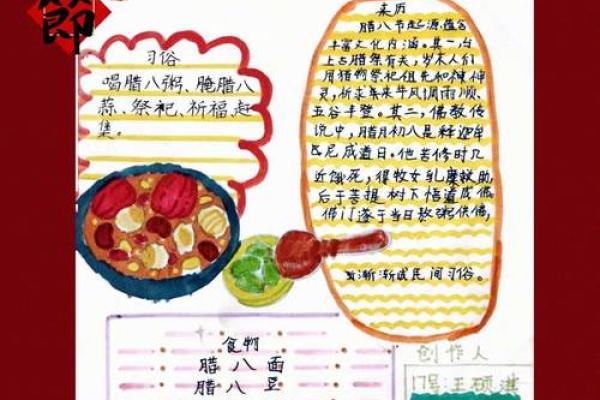 節
习俗
喝腊八粥、腌腊八
蒜、祭祀、祈福赶
集。
来历
腊八节起源蕴含
丰富文化内涵。其一,与
上古腊祭有关,岁末人们
用猎物祭祀祖先和神
灵,祈求年来年风调雨顺、
五谷丰登。其二,佛教传
说中,腊月初八是释迦牟
尼成道日。他苦修时几
近饿死,得牧女乳糜救助,
后于菩提树下悟道成佛
佛门遂于当日熬粥供佛,
渐渐成民间习俗。
食物
腊八面
腊八豆
创作人
17号王硕